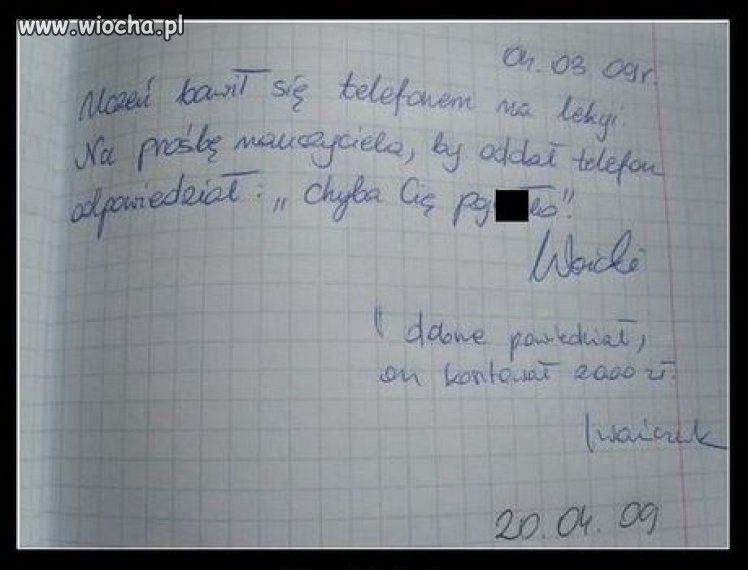 www.wiocha.pl
04.03.09r.
Uczeń bawił się telefonem na lekcji.
Na prośbę nauczyciela, by oddał telefon
odpowiedział: „Chyba Cię pg łło".
I dobrze powiedział,
on kosztował 2000 zł.
20.04.09